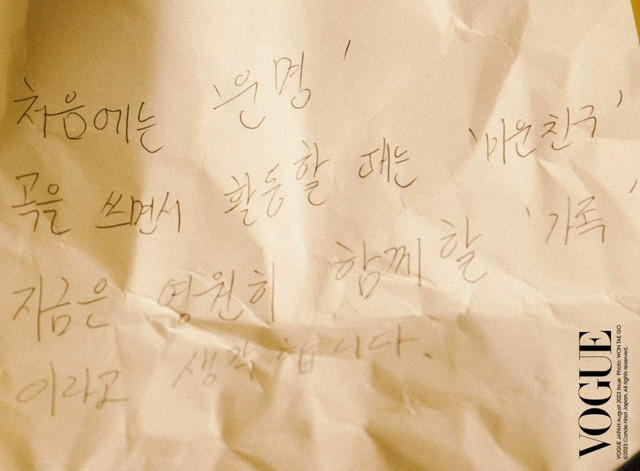 처음에는 '운명'
곡을 쓰면서 활동할 때는 '미운친구'
지금은 영원히 함께 할 '가족'
이라고 생각합니다.
VOGUE
VOGUE JAPAN August 2023 Issue Photo: WON TAE GO
©2023 Condé Nast Japan. All rights reserved.